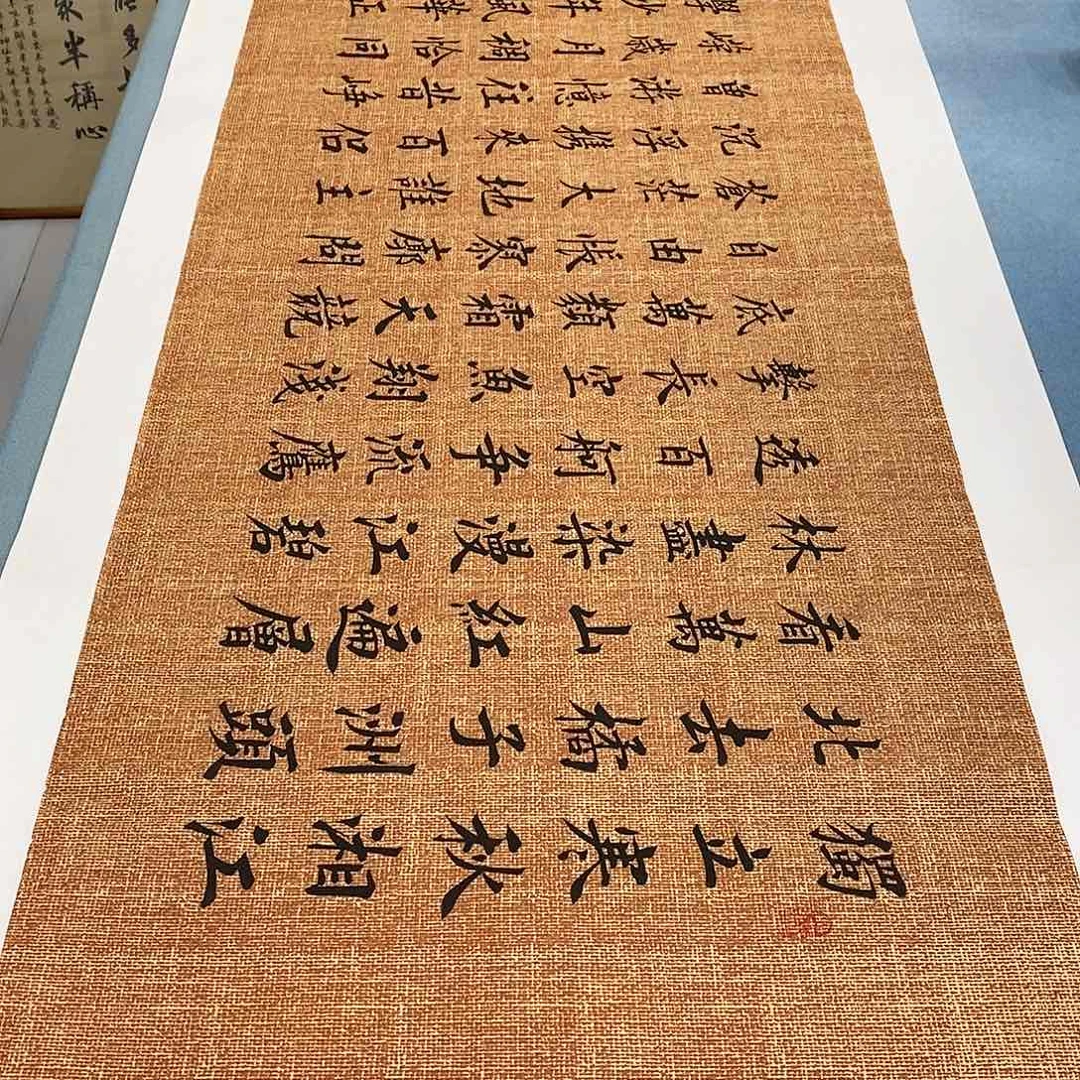 獨立寒秋湘江
北去橘子洲頭
看萬山紅遍層
林盡染漫江碧
透百舸爭流鷹
擊長空魚翔淺
底萬類霜天競
自由悵寥廓問
蒼茫大地誰主
沉浮攜來百侶
曾游憶往昔崢
嶸歲月稠恰同
學少年風華正
半稱心